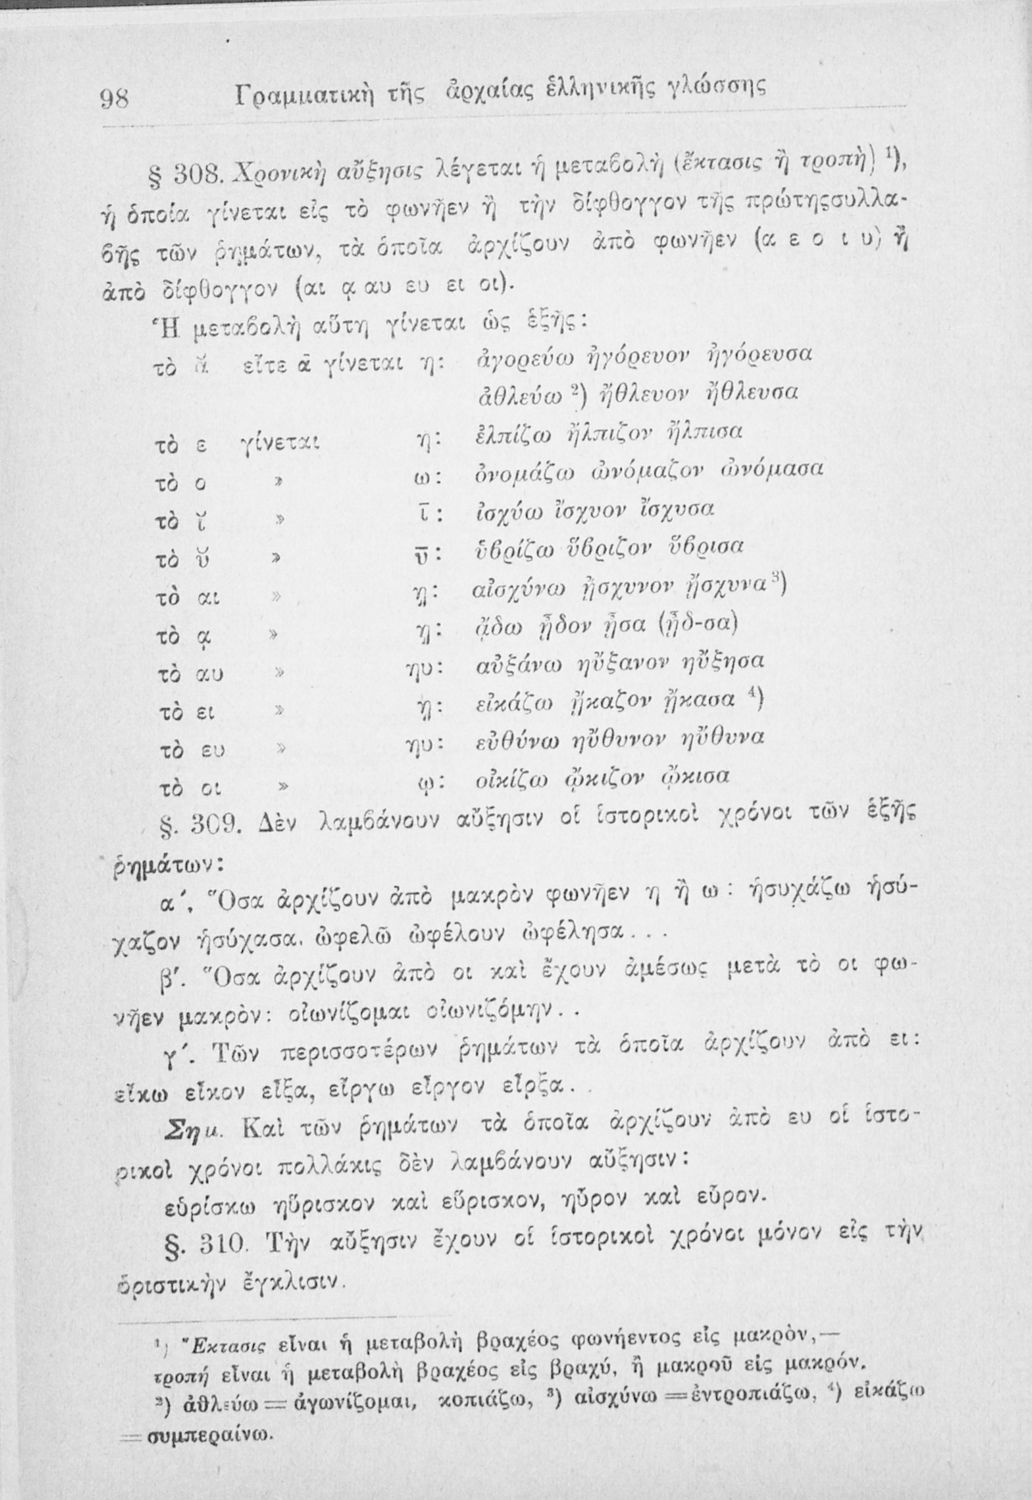 98 Γραμματικὴ τῆς ἀρχαίας ἑλληνικῆς γλώσσης
§ 308. Χρονικὴ αὔξησις λέγεται ἡ μεταβολὴ (ἔκτασις ἢ τροπὴ) ¹),
ἡ ὁποία γίνεται εἰς τὸ φωνῆεν ἢ τὴν δίφθογγον τῆς πρώτηςσυλλα-
βῆς τῶν ῥημάτων, τὰ ὁποῖα ἀρχίζουν ἀπὸ φωνῆεν (α ε ο ι υ) ἢ
ἀπὸ δίφθογγον (αι ᾳ αυ ευ ει οι).
Ἡ μεταβολὴ αὕτη γίνεται ὡς ἑξῆς:
τὸ ᾰ εἴτε ᾱ γίνεται η: ἀγορεύω ἠγόρευον ἠγόρευσα
ἀθλεύω ²) ἤθλευον ἤθλευσα
τὸ ε γίνεται η: ἐλπίζω ἤλπιζον ἤλπισα
τὸ ο » ω: ὀνομάζω ὠνόμαζον ὠνόμασα
τὸ ῐ » ῑ: ἰσχύω ἴσχυον ἴσχυσα
τὸ ῠ » ῡ: ὑβρίζω ὕβριζον ὕβρισα
τὸ αι » ῃ: αἰσχύνω ᾔσχυνον ᾔσχυνα ³)
τὸ ᾳ » ῃ: ᾄδω ᾖδον ᾖσα (ᾖδ-σα)
τὸ αυ » ηυ: αὐξάνω ηὔξανον ηὔξησα
τὸ ει » ῃ: εἰκάζω ᾔκαζον ᾔκασα ⁴)
τὸ ευ » ηυ: εὐθύνω ηὔθυνον ηὔθυνα
τὸ οι » ῳ: οἰκίζω ᾤκιζον ᾤκισα
§. 309. Δὲν λαμβάνουν αὔξησιν οἱ ἱστορικοὶ χρόνοι τῶν ἑξῆς
ῥημάτων:
α΄. Ὅσα ἀρχίζουν ἀπὸ μακρὸν φωνῆεν η ἢ ω: ἡσυχάζω ἡσύ-
χαζον ἡσύχασα. ὠφελῶ ὠφέλουν ὠφέλησα...
β΄. Ὅσα ἀρχίζουν ἀπὸ οι καὶ ἔχουν ἀμέσως μετὰ τὸ οι φω-
νῆεν μακρὸν: οἰωνίζομαι οἰωνιζόμην..
γ΄. Τῶν περισσοτέρων ῥημάτων τὰ ὁποῖα ἀρχίζουν ἀπὸ ει:
εἴκω εἶκον εἶξα, εἴργω εἶργον εἶρξα..
Σημ. Καὶ τῶν ῥημάτων τὰ ὁποῖα ἀρχίζουν ἀπὸ ευ οἱ ἱστο-
ρικοὶ χρόνοι πολλάκις δὲν λαμβάνουν αὔξησιν:
εὑρίσκω ηὕρισκον καὶ εὕρισκον, ηὗρον καὶ εὗρον.
§. 310. Τὴν αὔξησιν ἔχουν οἱ ἱστορικοὶ χρόνοι μόνον εἰς τὴν
ὁριστικὴν ἔγκλισιν.
¹) Ἔκτασις εἶναι ἡ μεταβολὴ βραχέος φωνήεντος εἰς μακρὸν,—
τροπή εἶναι ἡ μεταβολὴ βραχέος εἰς βραχύ, ἢ μακροῦ εἰς μακρόν.
²) ἀθλεύω = ἀγωνίζομαι, κοπιάζω, ³) αἰσχύνω = ἐντροπιάζω, ⁴) εἰκάζω
= συμπεραίνω.